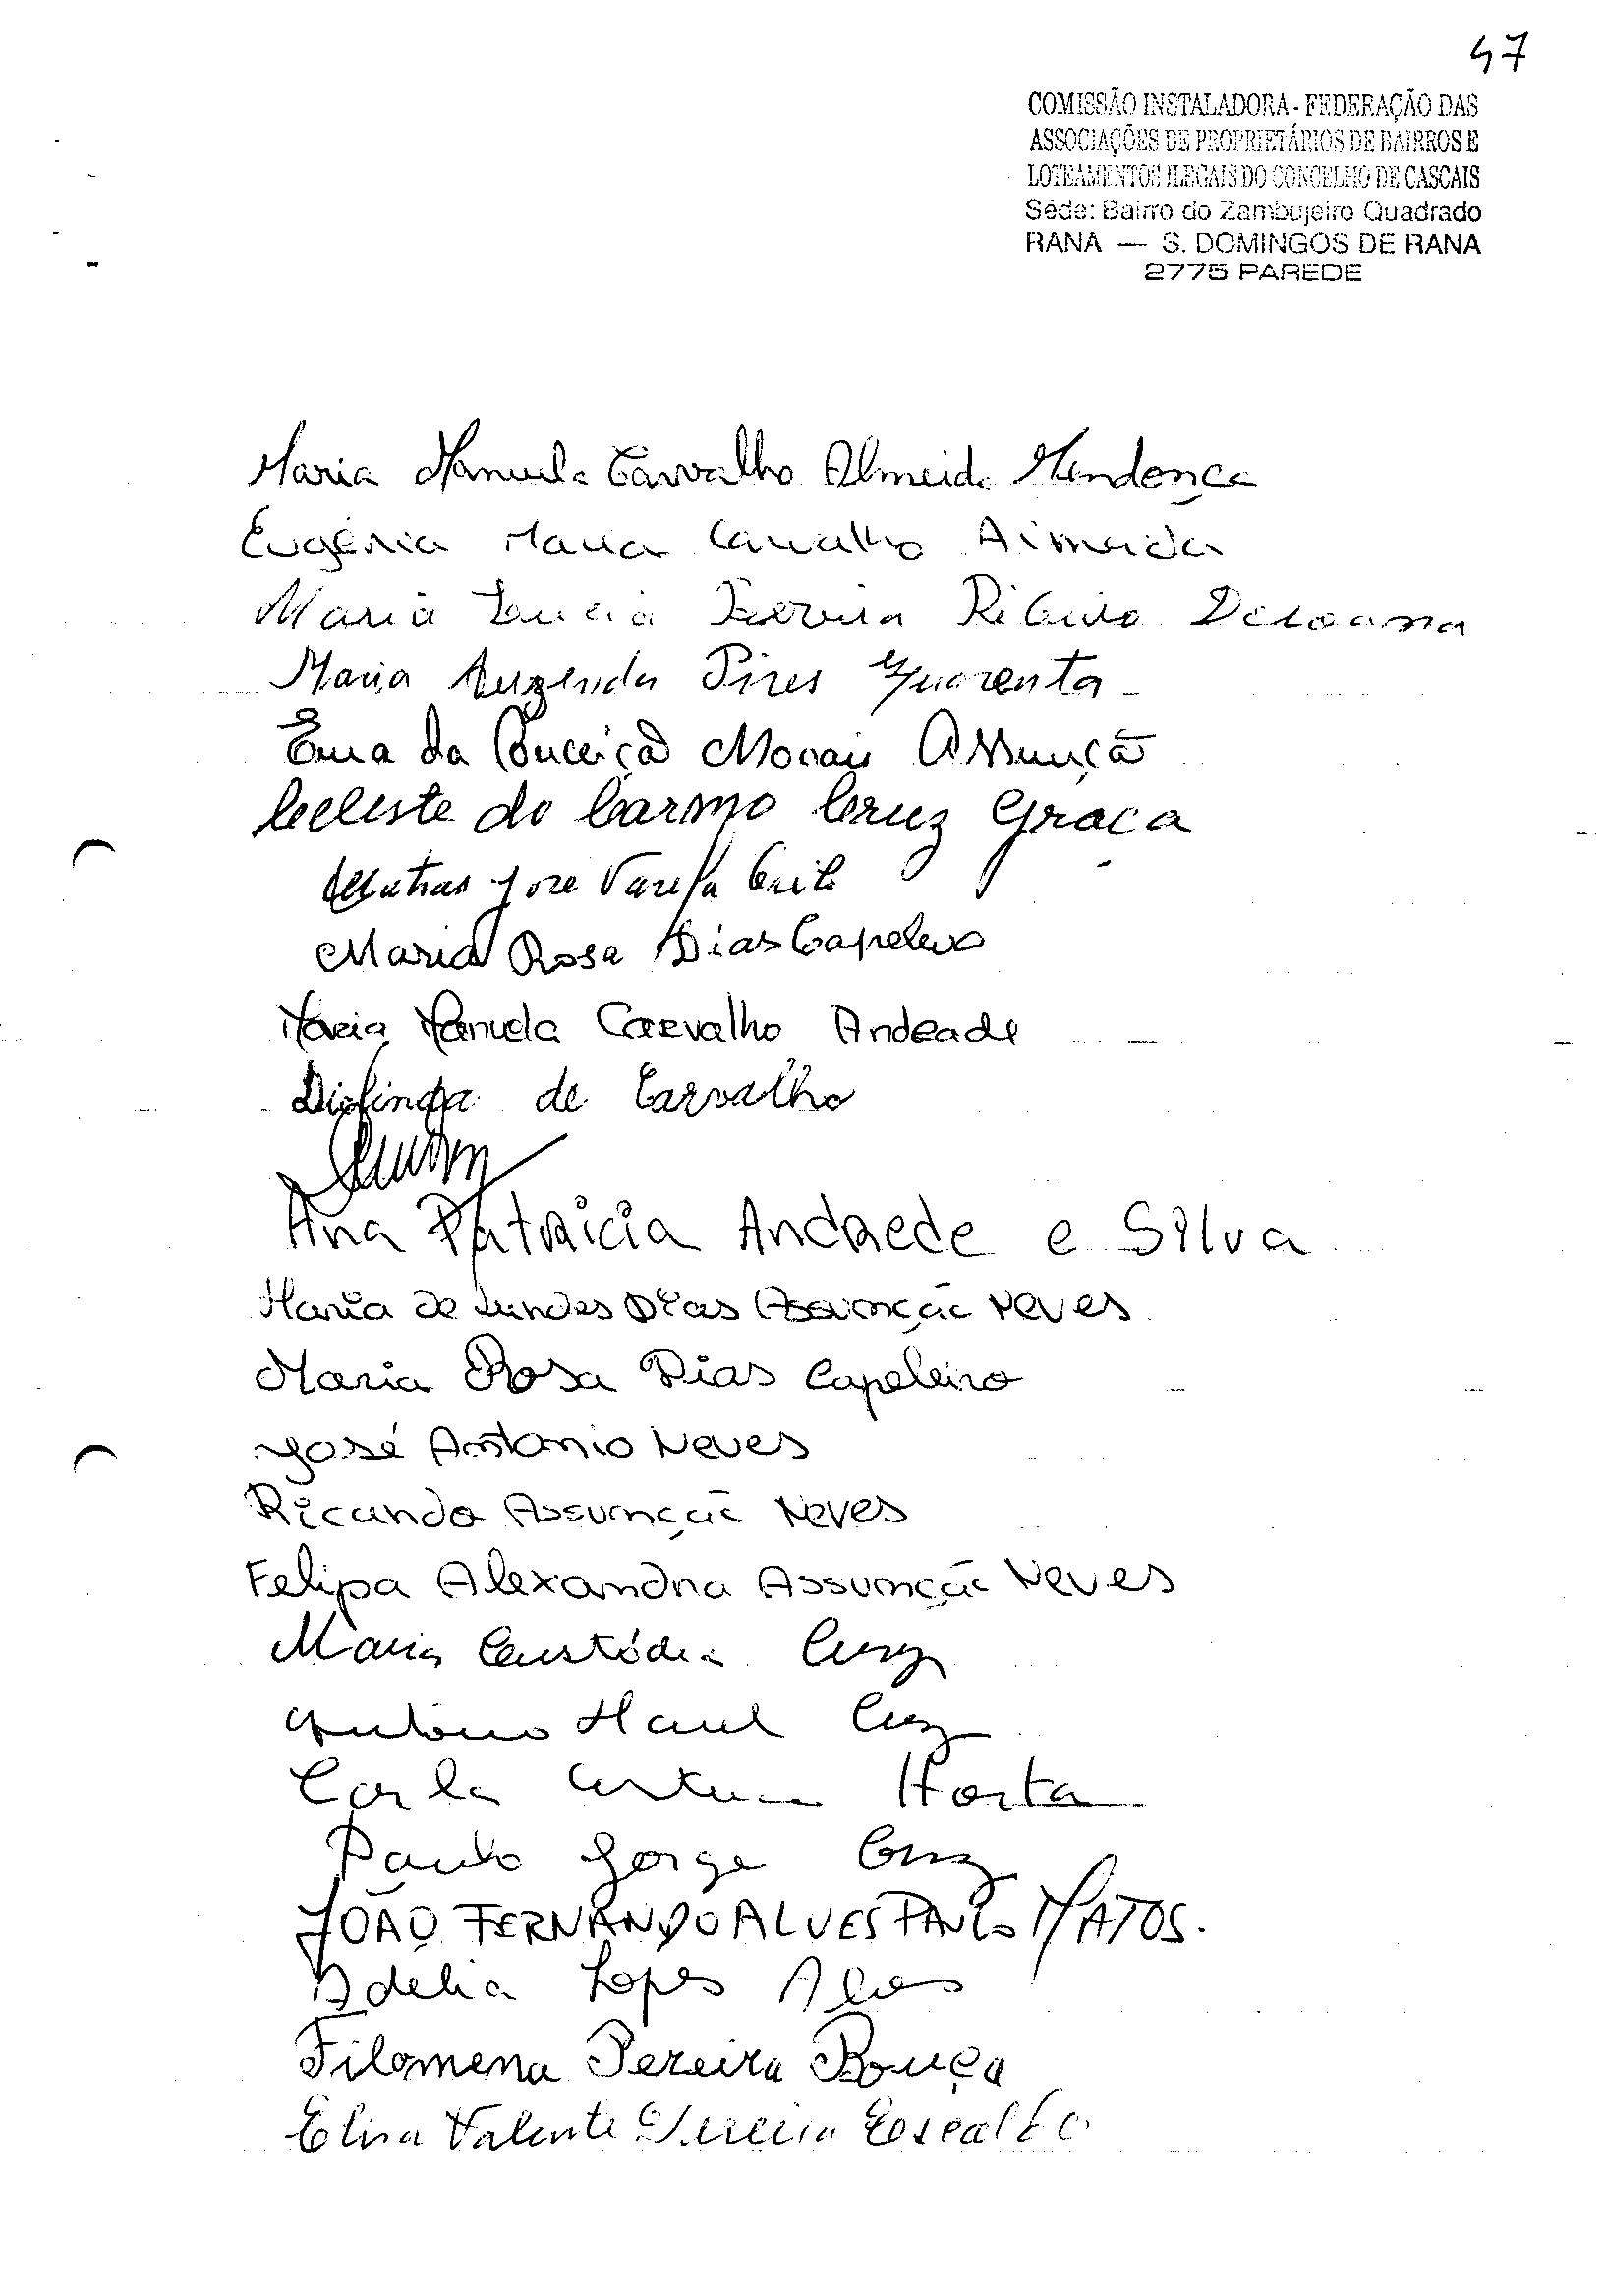 47
COMISSÃO INSTALADORA - FEDERAÇÃO DAS
ASSOCIAÇÕES DE PROPRIETÁRIOS DE BAIRROS E
LOTEAMENTOS ILEGAIS DO CONCELHO DE CASCAIS
Séde: Bairro do Zambujeiro Quadrado
RANA — S. DOMINGOS DE RANA
2775 PAREDE
Maria Manuela Carvalho Almeida Mendonça
Eugénia Maria Carvalho Almeida
Maria Lucia Ferreira Ribeiro
Maria Auzenda Pires Quarenta
Ema da Conceição Morais Assunção
Celeste do Carmo Cruz Graça
José Varela
Maria Rosa Dias Capeleiro
Maria Manuela Carvalho Andrade
de Carvalho
Ana Patricia Andrade e Silva
Maria de Lurdes Dias Assunção Neves
Maria Rosa Dias Capeleiro
José Antonio Neves
Ricardo Assunção Neves
Felipa Alexandra Assunção Neves
Maria Custódia Cruz
António Manuel Cruz
Carla Horta
Paulo Jorge Cruz
JOÃO FERNANDO ALVES PAULO MATOS.
Adélia Lopes Alves
Filomena Pereira Bouça
Elisa Valente